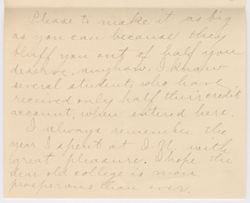 Please to make it as big
as you can because they
bluff you out of half you
deserve, anyhow. I know
several students who have
received only half their credit
account, when entered here.
I always remember the
year I spent at I. N. with
great pleasure. I hope the
dear old college is more
prosperous than ever.